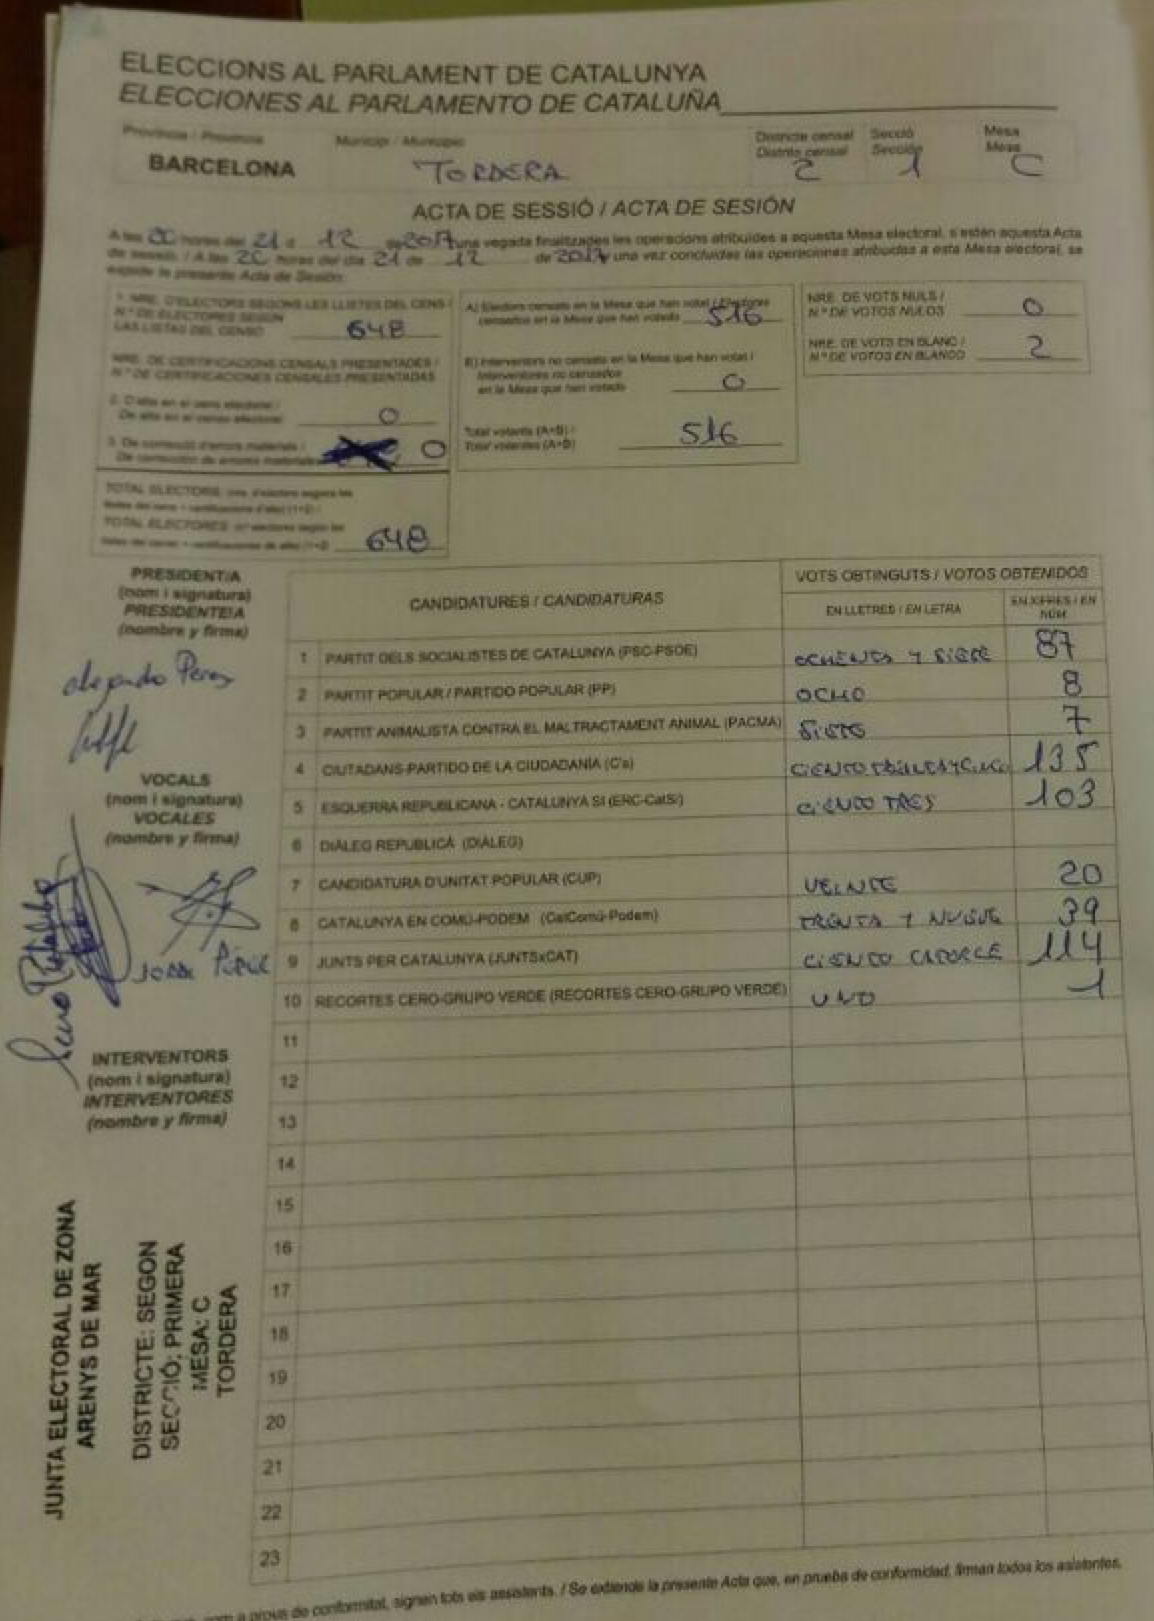 ELECCIONS AL PARLAMENT DE CATALUNYA
ELECCIONES AL PARLAMENTO DE CATALUÑA
Província / Provincia Municipi / Municipio Districte censal Secció Mesa
Distrito censal Sección Mesa
BARCELONA TORDERA 2 1 C
ACTA DE SESSIÓ / ACTA DE SESIÓN
A les 20 hores del 21 d 12 de 2017 una vegada finalitzades les operacions atribuïdes a aquesta Mesa electoral, s'estén aquesta Acta
de sessió. / A las 20 horas del día 21 de 12 de 2017 una vez concluidas las operaciones atribuidas a esta Mesa electoral, se
expide la presente Acta de Sesión:
1. NRE. D'ELECTORS SEGONS LES LLISTES DEL CENS /
N.º DE ELECTORES SEGÚN
LAS LISTAS DEL CENSO 648
NRE. DE CERTIFICACIONS CENSALS PRESENTADES /
N.º DE CERTIFICACIONES CENSALES PRESENTADAS
2. D'alta en el cens electoral /
De alta en el censo electoral 0
3. De correcció d'errors materials /
De corrección de errores materiales 0
TOTAL ELECTORS: nre. d'electors segons les
llistes del cens + certificacions d'alta) (1+2) /
TOTAL ELECTORES: nº electores según las
listas del censo + certificaciones de alta) (1+2) 648
A) Electors censats en la Mesa que han votat / Electores
censados en la Mesa que han votado 516
B) Interventors no censats en la Mesa que han votat /
Interventores no censados
en la Mesa que han votado 0
Total votants (A+B) /
Total votantes (A+B) 516
NRE. DE VOTS NULS /
N.º DE VOTOS NULOS 0
NRE. DE VOTS EN BLANC /
N.º DE VOTOS EN BLANCO 2
PRESIDENT/A
(nom i signatura)
PRESIDENTE/A
(nombre y firma)
alejandro Perez
VOCALS
(nom i signatura)
VOCALES
(nombre y firma)
INTERVENTORS
(nom i signatura)
INTERVENTORES
(nombre y firma)
CANDIDATURES / CANDIDATURAS VOTS OBTINGUTS / VOTOS OBTENIDOS
EN LLETRES / EN LETRA EN XIFRES / EN NÚM.
1 PARTIT DELS SOCIALISTES DE CATALUNYA (PSC-PSOE) OCHENTA Y SIETE 87
2 PARTIT POPULAR / PARTIDO POPULAR (PP) OCHO 8
3 PARTIT ANIMALISTA CONTRA EL MALTRACTAMENT ANIMAL (PACMA) SIETE 7
4 CIUTADANS-PARTIDO DE LA CIUDADANÍA (C's) CIENTO TREINTA Y CINCO 135
5 ESQUERRA REPUBLICANA - CATALUNYA SÍ (ERC-CatSí) CIENTO TRES 103
6 DIÀLEG REPUBLICÀ (DIÀLEG)
7 CANDIDATURA D'UNITAT POPULAR (CUP) VEINTE 20
8 CATALUNYA EN COMÚ-PODEM (CatComú-Podem) TREINTA Y NUEVE 39
9 JUNTS PER CATALUNYA (JUNTSxCAT) CIENTO CATORCE 114
10 RECORTES CERO-GRUPO VERDE (RECORTES CERO-GRUPO VERDE) UNO 1
11
12
13
14
15
16
17
18
19
20
21
22
23
JUNTA ELECTORAL DE ZONA
ARENYS DE MAR
DISTRICTE: SEGON
SECCIÓ: PRIMERA
MESA: C
TORDERA
a prova de conformitat, signen tots els assistents. / Se extiende la presente Acta que, en prueba de conformidad, firman todos los asistentes.